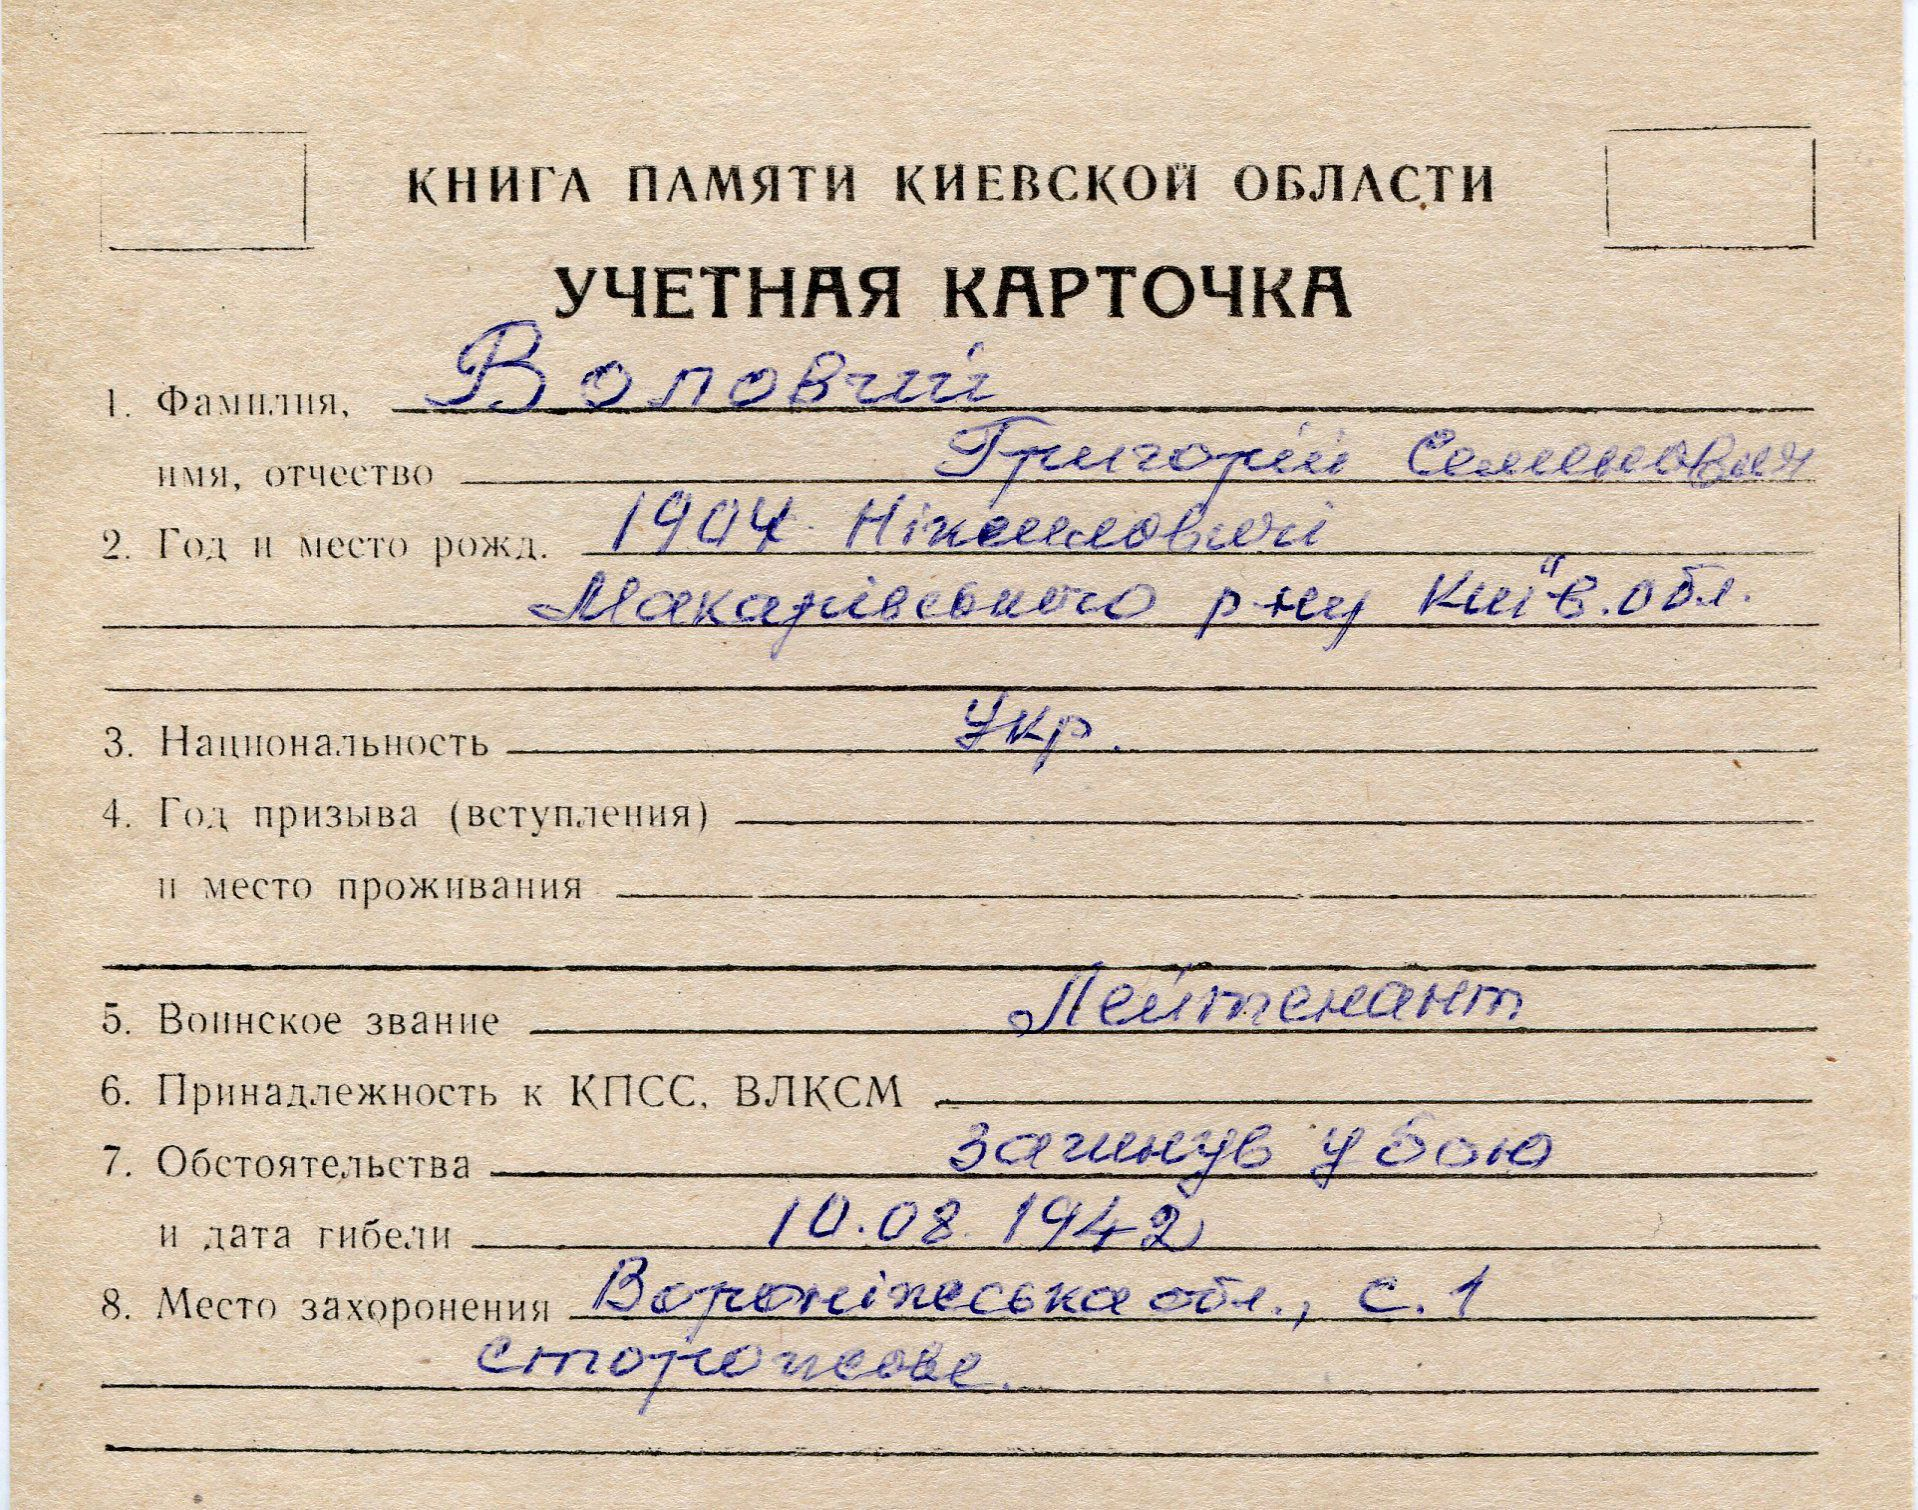 КНИГА ПАМЯТИ КИЕВСКОЙ ОБЛАСТИ
УЧЕТНАЯ КАРТОЧКА
1. Фамилия, Воловчий
имя, отчество Григорій Семенович
2. Год и место рожд. 1904
Макарівського р-ну Київ. обл.
3. Национальность Укр.
4. Год призыва (вступления)
и место проживания
5. Воинское звание Лейтенант
6. Принадлежность к КПСС, ВЛКСМ
7. Обстоятельства загинув у бою
и дата гибели 10.08.1942
8. Место захоронения Вороніжська обл., с. 1
сторожове.